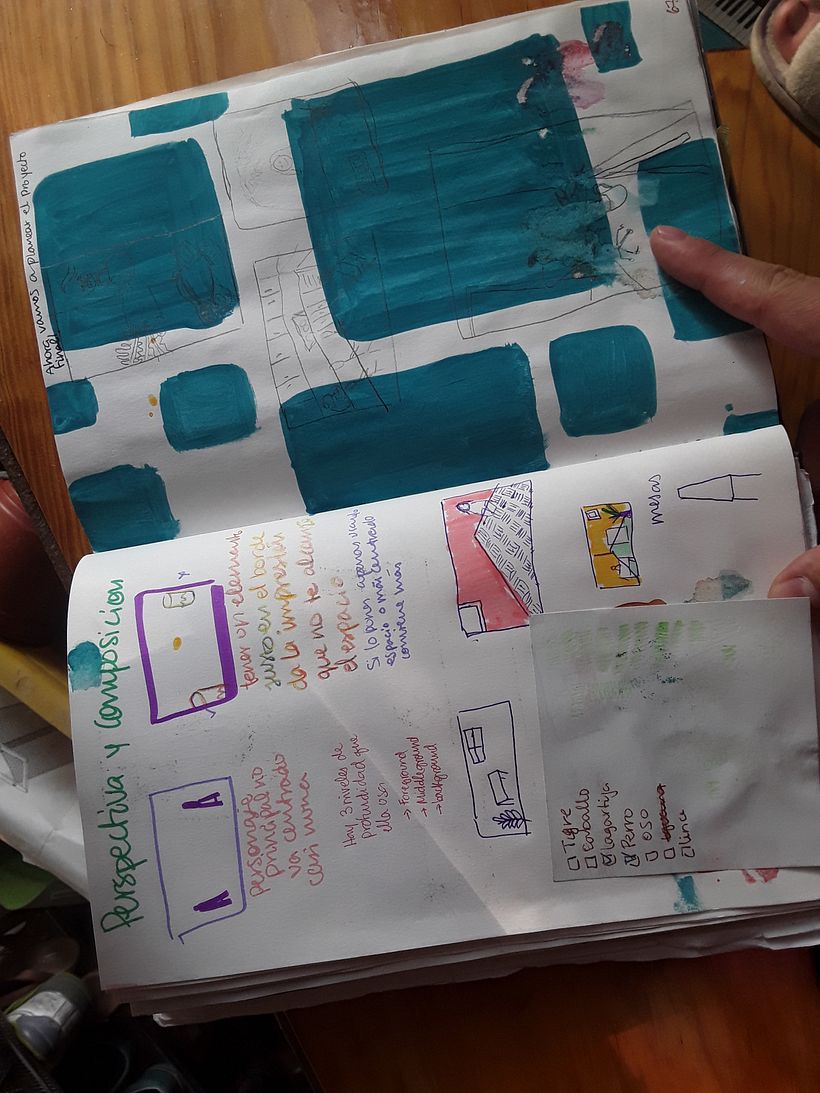 Perspectiva y Composición
personaje
principal no
va centrado
casi nunca
tener un elemento
justo en el borde
da la impresión
que no te alcanza
el espacio
Si lo pones apenas usando
espacio o más centrado
conviene más
Hay 3 niveles de
profundidad que
ella usa
→ Foreground
→ Middleground
→ background
mesas
Tigre
Caballo
lagartija
Perro
OSO
lince
Ahora vamos a planear el proyecto
final
67